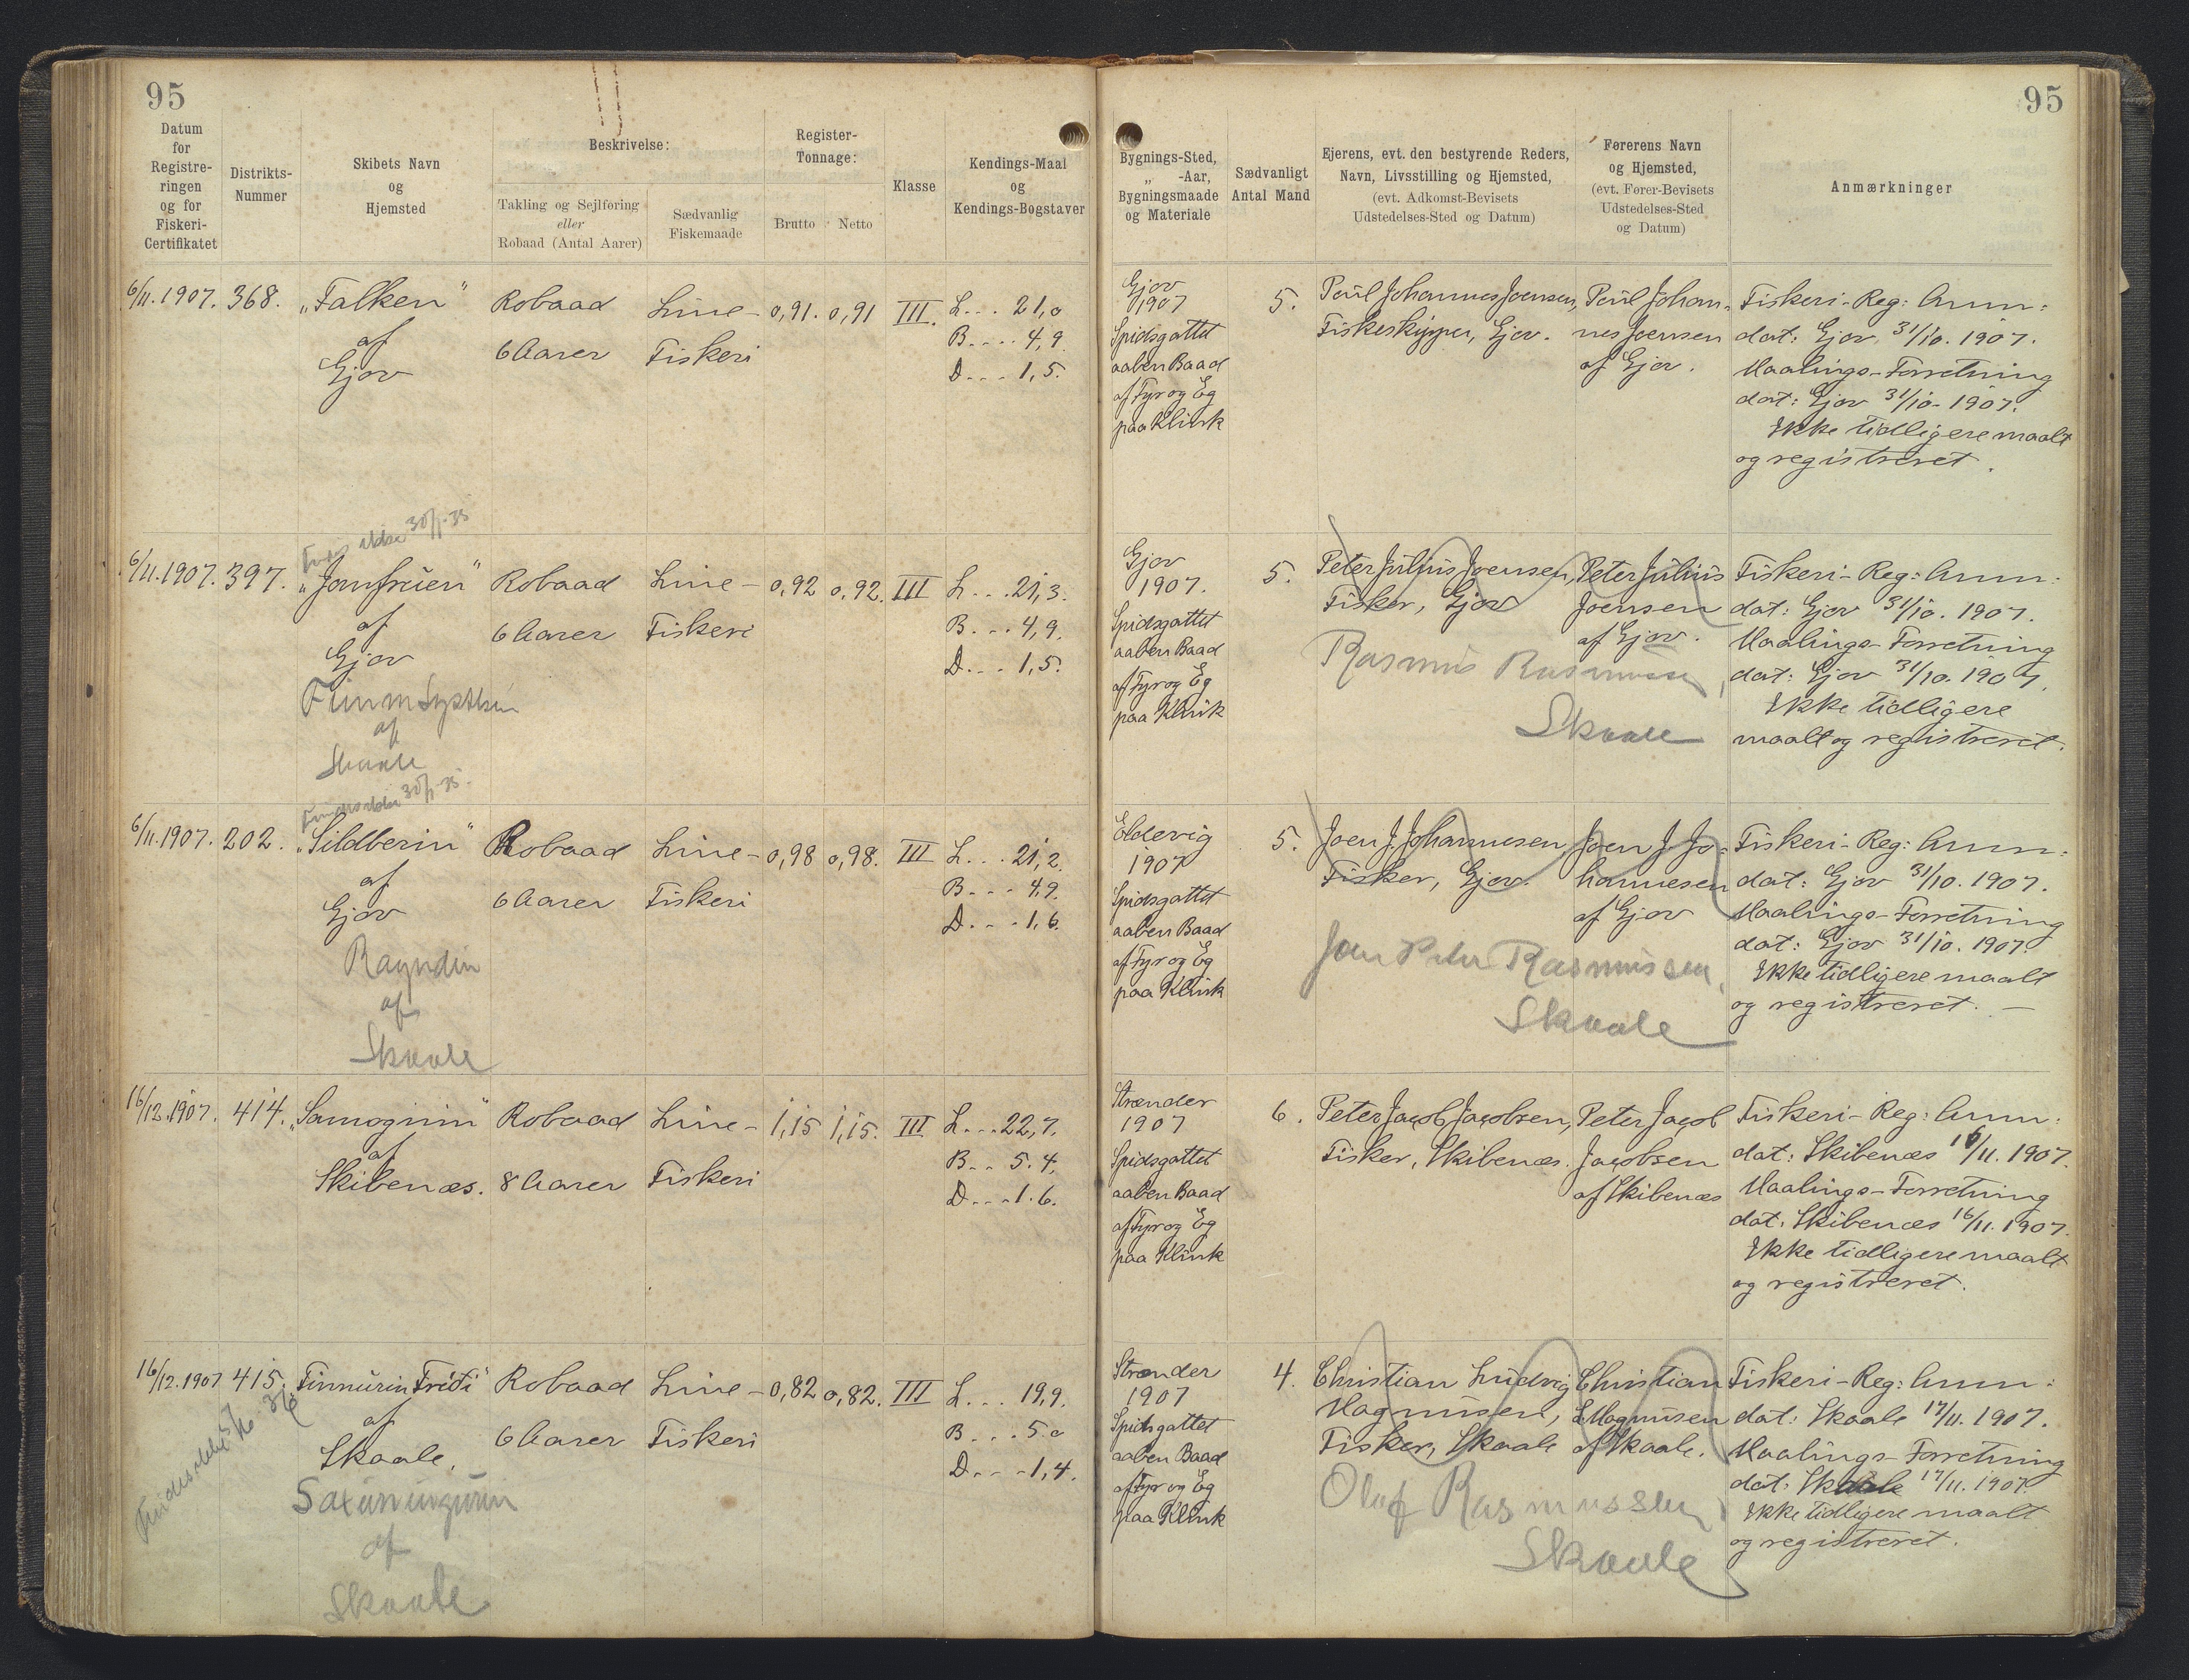 95
95
Datum
for
Registre-
ringen
og for
Fiskeri-
Certifikatet
Distrikts-
Nummer
Skibets Navn
og
Hjemsted
Beskrivelse:
Takling og Sejlføring
eller
Robaad (Antal Aarer)
Sædvanlig
Fiskemaade
Register-
Tonnage:
Brutto
Netto
Klasse
Kendings-Maal
og
Kendings-Bogstaver
Bygnings-Sted,
„ -Aar,
Bygningsmaade
og Materiale
Sædvanligt
Antal Mand
Ejerens, evt. den bestyrende Reders,
Navn, Livsstilling og Hjemsted,
(evt. Adkomst-Bevisets
Udstedelses-Sted og Datum)
Førerens Navn
og Hjemsted,
(evt. Fører-Bevisets
Udstedelses-Sted
og Datum)
Anmærkninger
6/11. 1907.
368.
„Falken"
af
Gjov
Robaad
6 Aarer
Line-
Fiskeri
0,91.
0,91
III.
L... 21,0
B.... 4,9
D... 1,5.
Gjov
1907
Spidsgattet
aaben Baad
af Fyr og Eg
paa Klink
5.
Poul Johannes Joensen,
Fiskeskipper, Gjov.
Poul Johan-
nes Joensen
af Gjov.
Fiskeri-Reg: Anm:
dat: Gjov 31/10. 1907.
Maalings-Forretning
dat: Gjov 31/10. 1907.
Ikke tidligere maalt
og registreret.
6/11. 1907.
397.
30/1-35
„Jomfruen"
af
Gjov
af
Skaale
Robaad
6 Aarer
Line-
Fiskeri
0,92
0,92.
III
L... 21,3.
B... 4,9.
D... 1,5.
Gjov
1907.
Spidsgattet
aaben Baad
af Fyr og Eg
paa Klink
5.
Peter Julius Joensen,
Fisker, Gjov
Rasmus Rasmussen,
Skaale
Peter Julius
Joensen
af Gjov.
Fiskeri-Reg: Anm:
dat: Gjov 31/10. 1907.
Maalings-Forretning
dat: Gjov 31/10. 1907.
Ikke tidligere
maalt og registreret.
6/11. 1907.
202.
30/1-35.
„Sildberin"
af
Gjov
af
Skaale
Robaad
6 Aarer
Line-
Fiskeri
0,98
0,98.
III
L... 21,2.
B... 4,9.
D... 1,6.
Eldevig
1907
Spidsgattet
aaben Baad
af Fyr og Eg
paa Klink
5.
Joen J. Johannesen,
Fisker, Gjov.
Joen Peter Rasmussen,
Skaale
Joen J. Jo-
hannesen
af Gjov
Fiskeri-Reg: Anm:
dat: Gjov 31/10. 1907.
Maalings-Forretning
dat: Gjov 31/10. 1907.
Ikke tidligere maalt
og registreret. —
16/12. 1907.
414.
„Samognin"
af
Skibenæs.
Robaad
8 Aarer
Line-
Fiskeri
1,15
1,15.
III
L... 22,7.
B... 5.4.
D... 1.6.
Strænder
1907
Spidsgattet
aaben Baad
af Fyr og Eg
paa Klink
6.
Peter Jacob Jacobsen,
Fisker, Skibenæs.
Peter Jacob
Jacobsen
af Skibenæs
Fiskeri-Reg: Anm:
dat: Skibenæs 16/11. 1907.
Maalings-Forretning
dat: Skibenæs 16/11. 1907.
Ikke tidligere maalt
og registreret.
16/12. 1907
415.
„Finnurin Fridi"
af
Skaale.
af
Skaale
Robaad
6 Aarer
Line-
Fiskeri
0,82
0,82.
III
L... 19,9.
B... 5.0
D... 1,4.
Strænder
1907
Spidsgattet
aaben Baad
af Fyr og Eg
paa Klink
4.
Christian Ludvig
Magnusen,
Fisker, Skaale
Olaf Rasmussen,
Skaale
Christian
L. Magnusen
af Skaale.
Fiskeri-Reg: Anm:
dat: Skaale 17/11. 1907.
Maalings-Forretning
dat: Skaale 17/11. 1907.
Ikke tidligere maalt
og registreret.